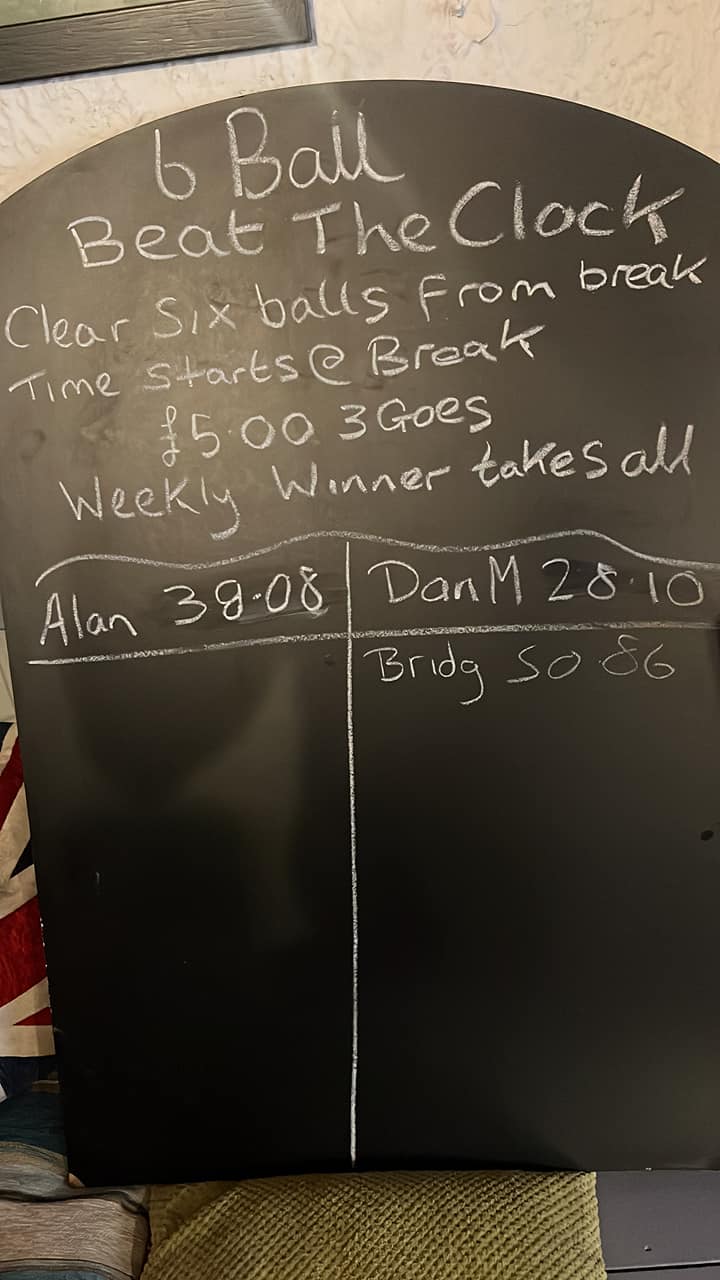 6 Ball
Beat The Clock
Clear Six balls From break
Time Starts @ Break
£5.00 3 Goes
Weekly Winner takes all
Alan 38.08
Dan M 28.10
Bridg 50.86